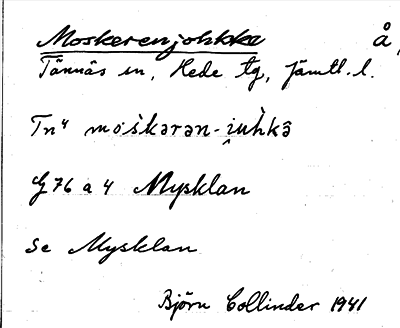 Moskerenjohkka Å,
Tännäs sn, Hede tg, Jämtl. l.
Tn⁴ moškərən-i̯uh̀kâ
G 76 a 4 Mysklan
Se Mysklan
Björn Collinder 1941